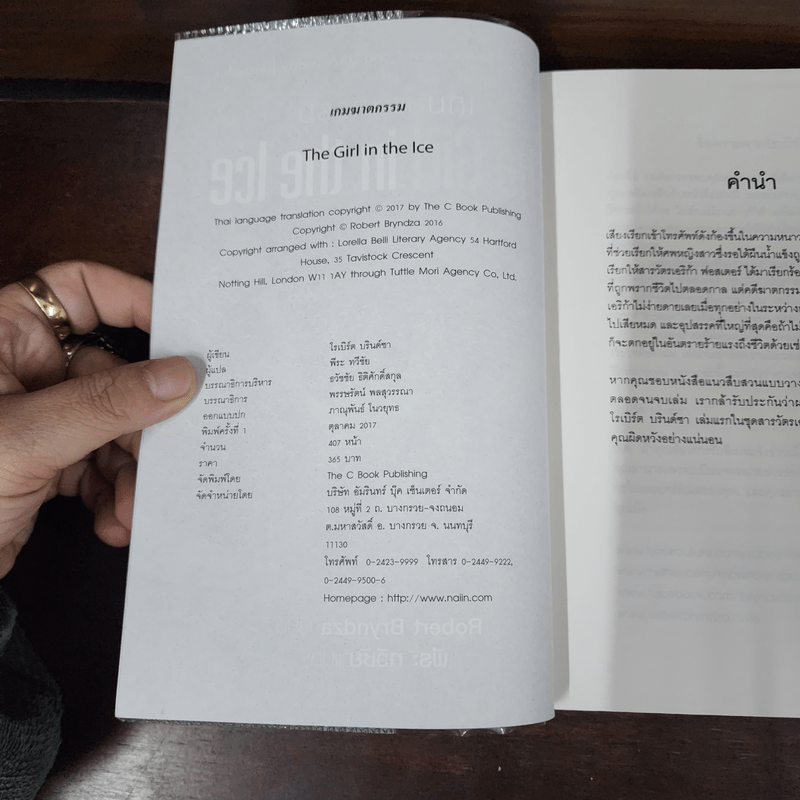 เกมฆาตกรรม
The Girl in the Ice
Thai language translation copyright © 2017 by The C Book Publishing
Copyright © Robert Bryndza 2016
Copyright arranged with : Lorella Belli Literary Agency 54 Hartford
House, 35 Tavistock Crescent
Notting Hill, London W11 1AY through Tuttle Mori Agency Co, Ltd.
ผู้เขียน โรเบิร์ต บรินด์ซา
ผู้แปล พีระ ทวีชัย
บรรณาธิการบริหาร ธวัชชัย ธิติศักดิ์สกุล
บรรณาธิการ พรรษรัตน์ พลสุวรรณา
ออกแบบปก ภาณุพันธ์ โนวยุทธ
พิมพ์ครั้งที่ 1 ตุลาคม 2017
จำนวน 407 หน้า
ราคา 365 บาท
จัดพิมพ์โดย The C Book Publishing
จัดจำหน่ายโดย บริษัท อัมรินทร์ บุ๊ค เซ็นเตอร์ จำกัด
108 หมู่ที่ 2 ถ. บางกรวย-จงถนอม
ต.มหาสวัสดิ์ อ. บางกรวย จ. นนทบุรี
11130
โทรศัพท์ 0-2423-9999 โทรสาร 0-2449-9222,
0-2449-9500-6
Homepage : http://www.naiin.com
Robert Bryndza
พีระ ทวีชัย
คำนำ
เสียงเรียกเข้าโทรศัพท์ดังก้องขึ้นในความหนาว
ที่ช่วยเรียกให้ศพหญิงสาวซึ่งรอใต้ผืนน้ำแข็งถู
เรียกให้สารวัตรเอริก้า ฟอสเตอร์ ได้มาเรียกร้อ
ที่ถูกพรากชีวิตไปตลอดกาล แต่คดีฆาตกรรม
เอริก้าไม่ง่ายดายเลยเมื่อทุกอย่างในระหว่าง
ไปเสียหมด และอุปสรรคที่ใหญ่ที่สุดคือถ้าไม่
ก็จะตกอยู่ในอันตรายร้ายแรงถึงชีวิตด้วยเช่
หากคุณชอบหนังสือแนวสืบสวนแบบวาง
ตลอดจนจบเล่ม เรากล้ารับประกันว่า
โรเบิร์ต บรินด์ซา เล่มแรกในชุดสารวัตรเ
คุณผิดหวังอย่างแน่นอน